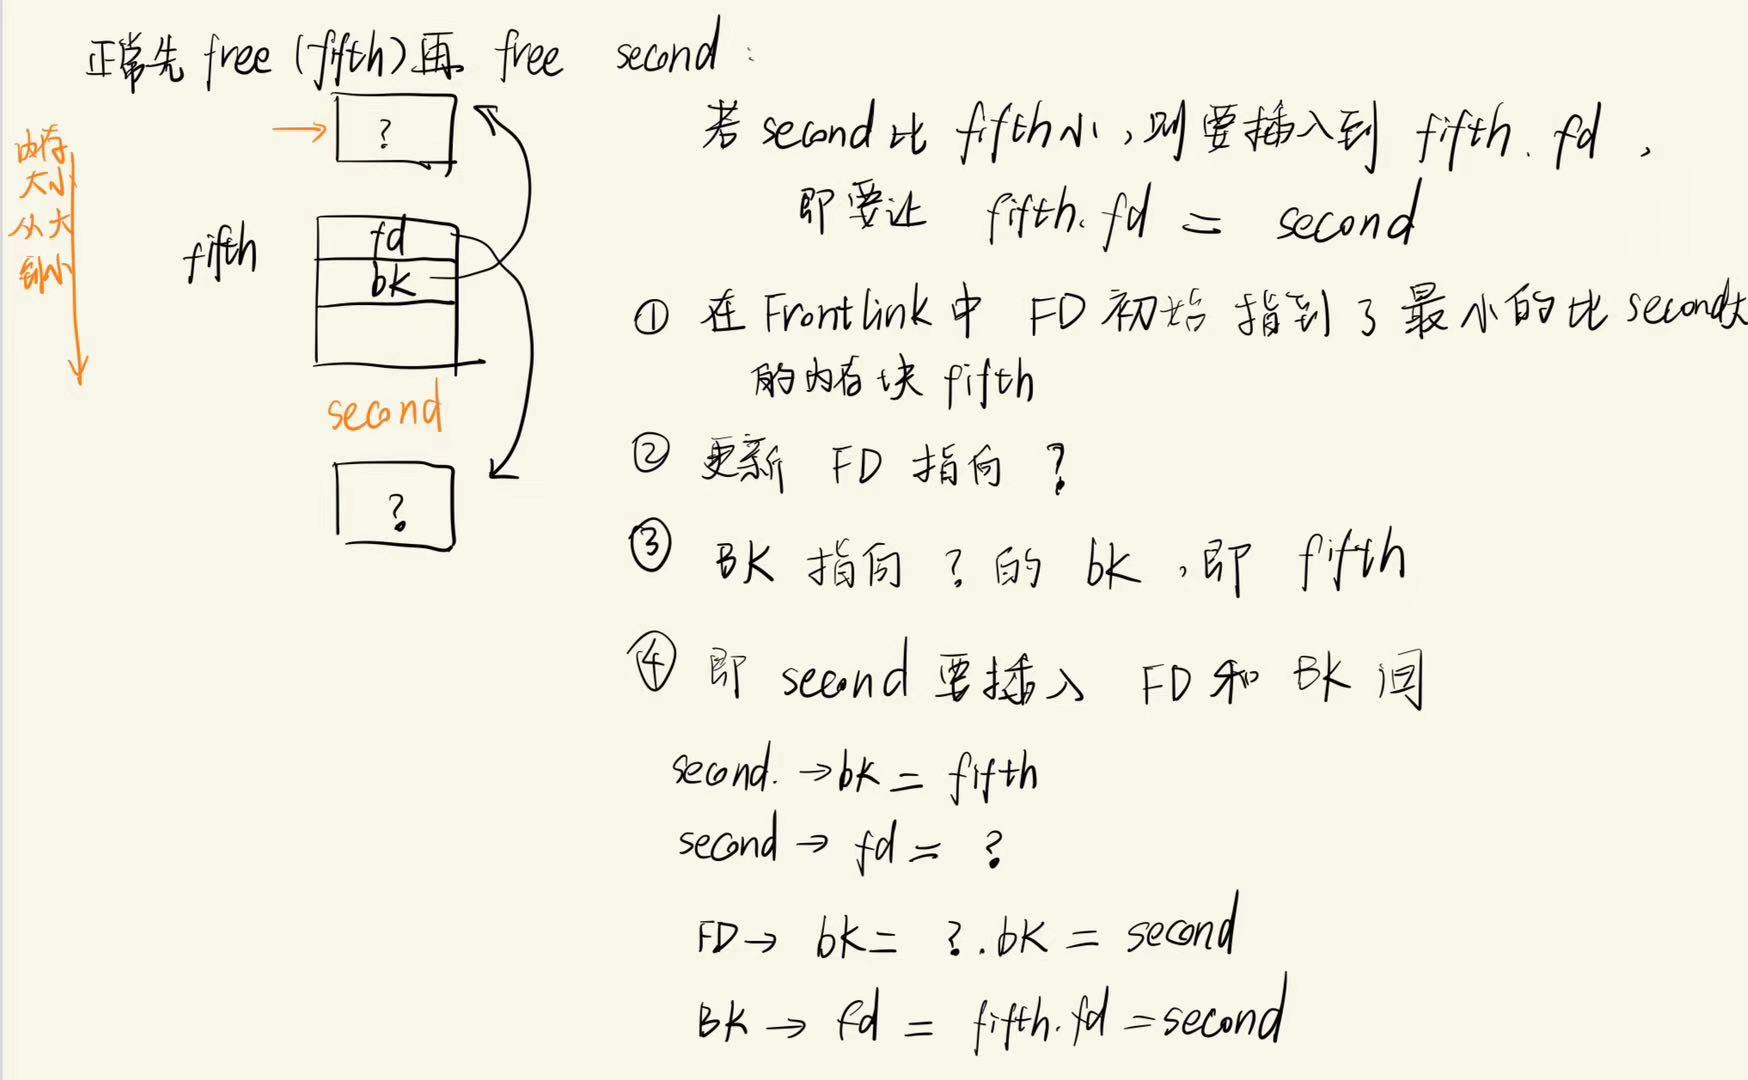 正常先 free (fifth) 再 free second :
?
内存
大小
从大
到小
fifth
fd
bk
second
?
若 second 比 fifth 小，则要插入到 fifth. fd ，
即要让 fifth. fd = second
① 在 Frontlink 中 FD 初始 指到了 最小的比 second大
的内存块 fifth
② 更新 FD 指向 ?
③ BK 指向 ? 的 bk ，即 fifth
④ 即 second 要插入 FD 和 BK 间
second. →bk = fifth
second → fd = ?
FD→ bk = ?. bk = second
BK → fd = fifth. fd = second